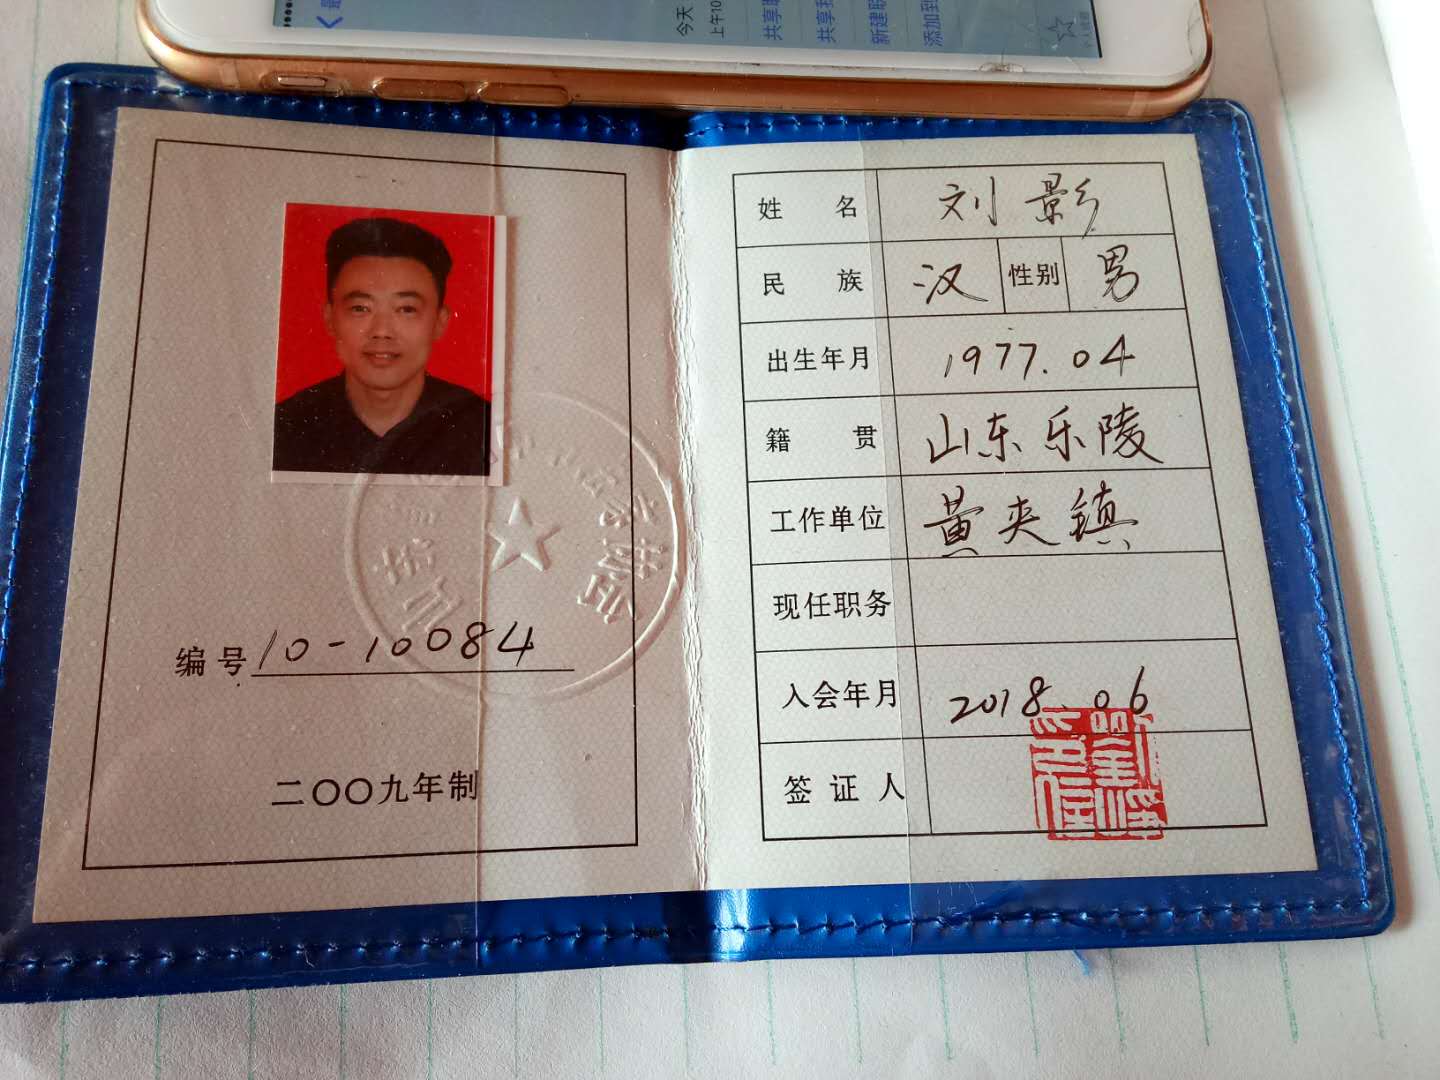 今天
上午10
共享
共享
新建联
添加到
编号 10-10084
二〇〇九年制
姓名 刘影
民族 汉 性别 男
出生年月 1977.04
籍贯 山东乐陵
工作单位 黄夹镇
现任职务
入会年月 2018.06
签证人